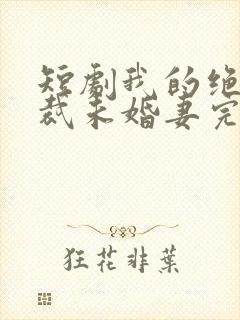 短剧我的绝
裁未婚妻完
狂花非葉